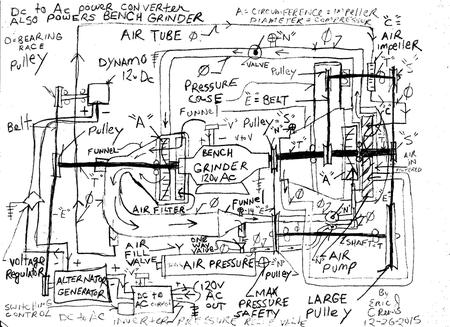 DC to AC power converter
ALSO POWERS BENCH GRINDER
A = CIRCUMFERENCE = IMPELLER
DIAMETER = COMPRESSOR
D=BEARING
RACE
Pulley
AIR TUBE
"N"
VALVE
"E"
AIR
impeller
DYNAMO
12v DC
PRESSURE
Pulley
"E" = BELT
"S"
Belt
Pulley
"A"
FUNNEL
"V"
V+V
Pulley
"N"
"S"
"C"
"S"
AIR
IN
FILTERED
BENCH
GRINDER
120V AC
"T"
"T"
"A"
"E"
AIR FILTER
FUNNEL
"E"
"N"
SHAFT
AIR
FILL
VALVE
ONE
WAY
VALVE
AIR PRESSURE
"N"
pulley
AIR
PUMP
Voltage
Regulator
ALTERNATOR
GENERATOR
"V"
DC to
AC
120V
AC
OUT
MAX
PRESSURE
SAFETY
LARGE
Pulley
By
Eric
Crews
12-26-2015
SWITCHING
CONTROL
DC to AC
INVERTER
PRESSURE
VALVE